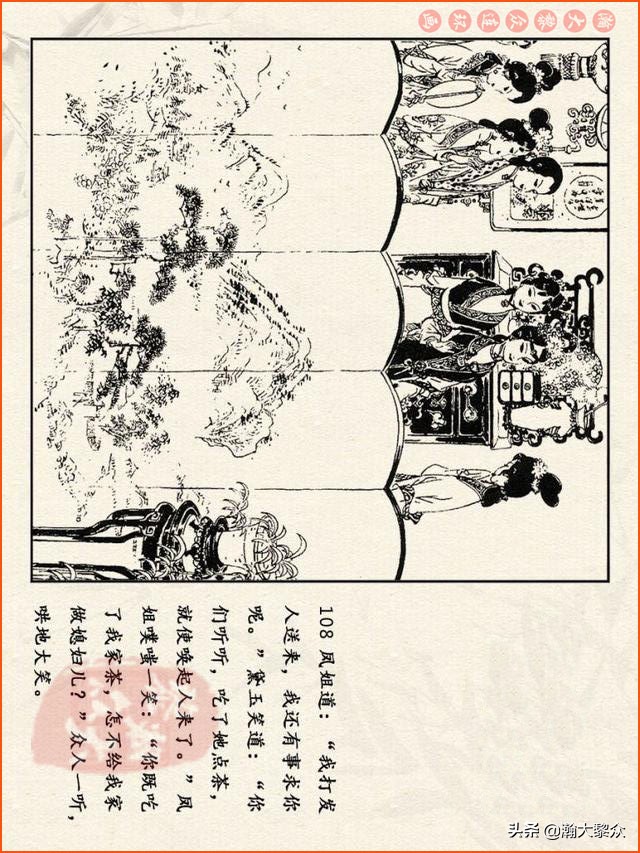 瀚大黎众连环画
108 凤姐道：“我打发
人送来，我还有事求你
呢。”黛玉笑道：“你
们听听，吃了她点茶，
就使唤起人来了。”凤
姐噗嗤一笑：“你既吃
了我家茶，怎不给我家
做媳妇儿？”众人一听，
哄地大笑。
头条 @瀚大黎众